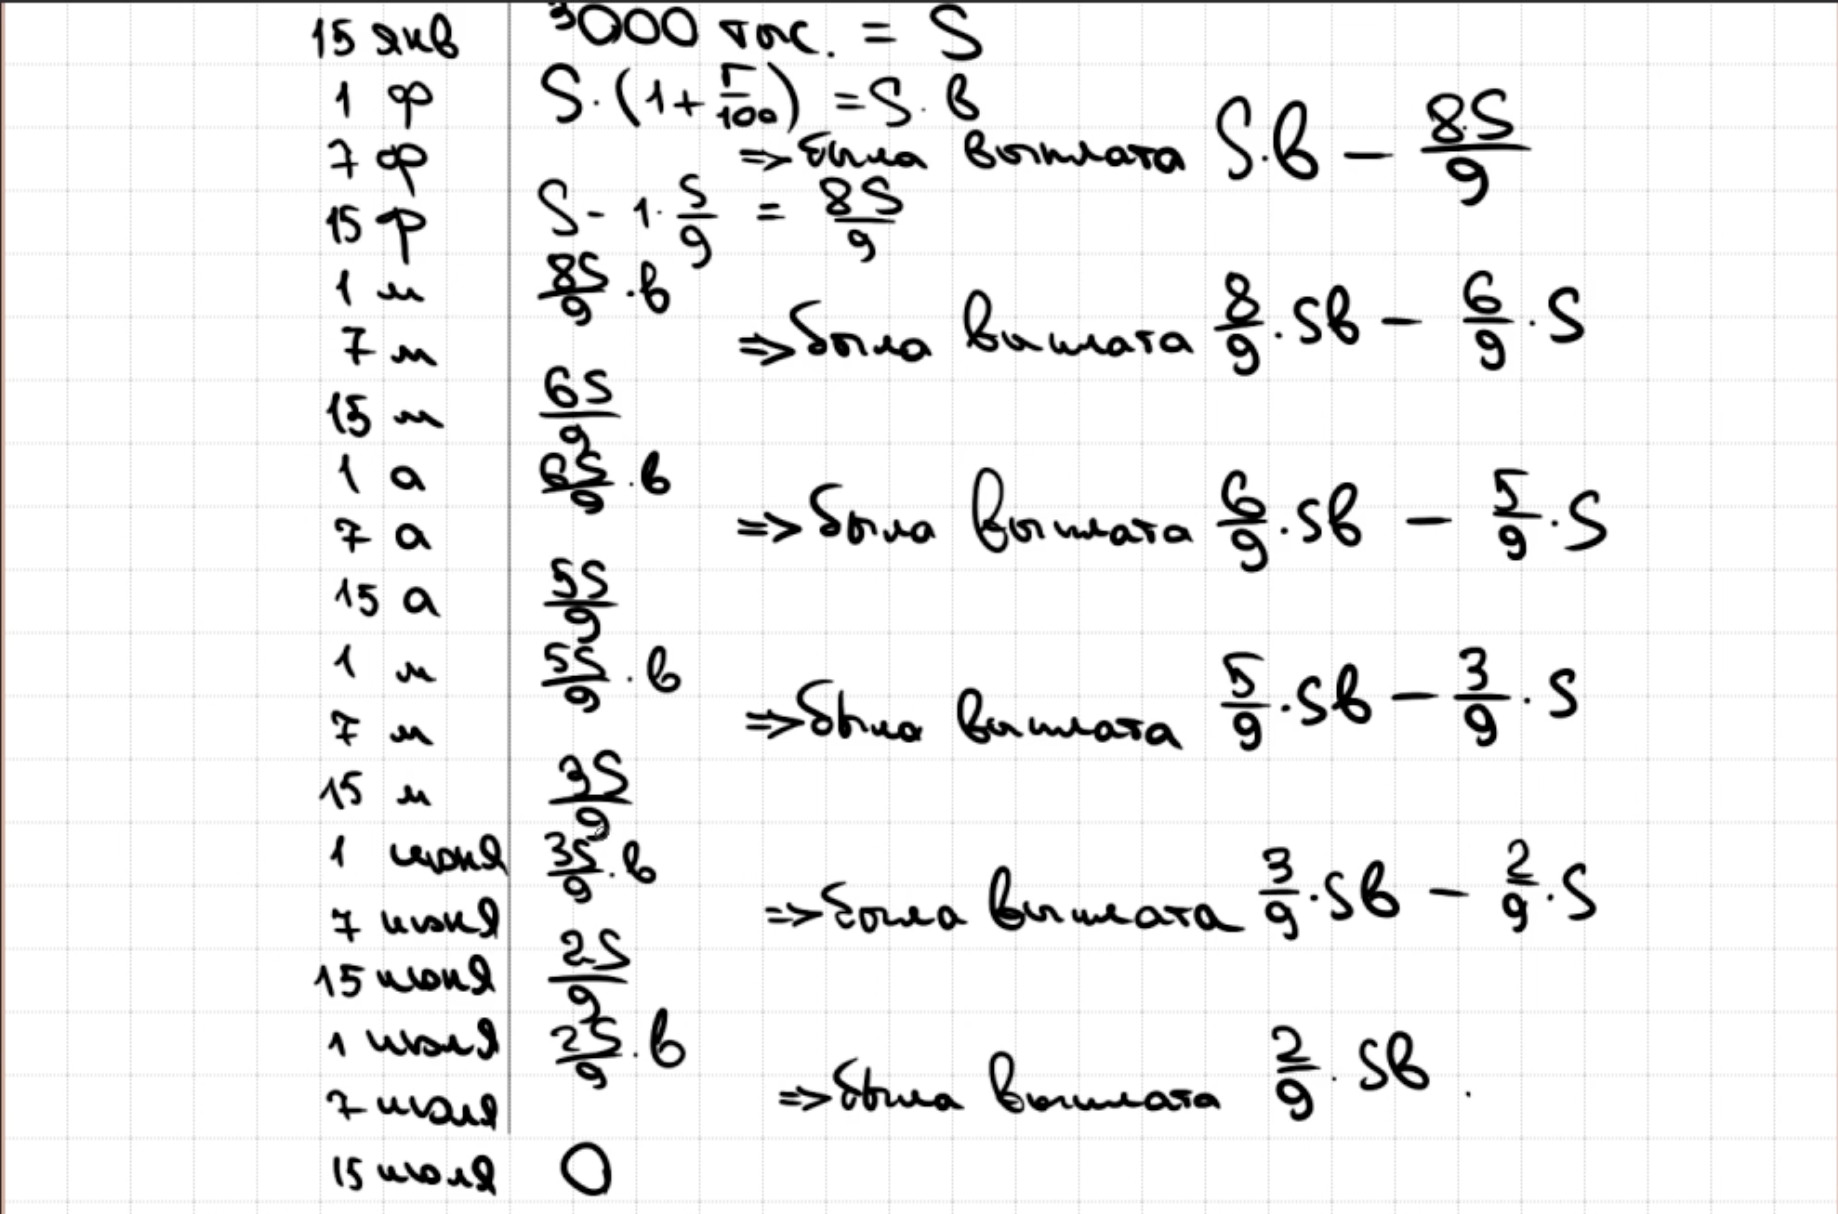 15 янв 3000 тыс. = S
1 ф S·(1+r/100) = S·b
7 ф => была выплата S·b − 8S/9
15 ф S − 1·S/9 = 8S/9
1 м 8S/9·b
7 м => была выплата 8/9·Sb − 6/9·S
15 м 6S/9
1 а 6S/9·b
7 а => была выплата 6/9·Sb − 5/9·S
15 а 5S/9
1 м 5S/9·b
7 м => была выплата 5/9·Sb − 3/9·S
15 м 3S/9
1 июня 3S/9·b
7 июня => была выплата 3/9·Sb − 2/9·S
15 июня 2S/9
1 июля 2S/9·b
7 июля => была выплата 2/9·Sb.
15 июля 0